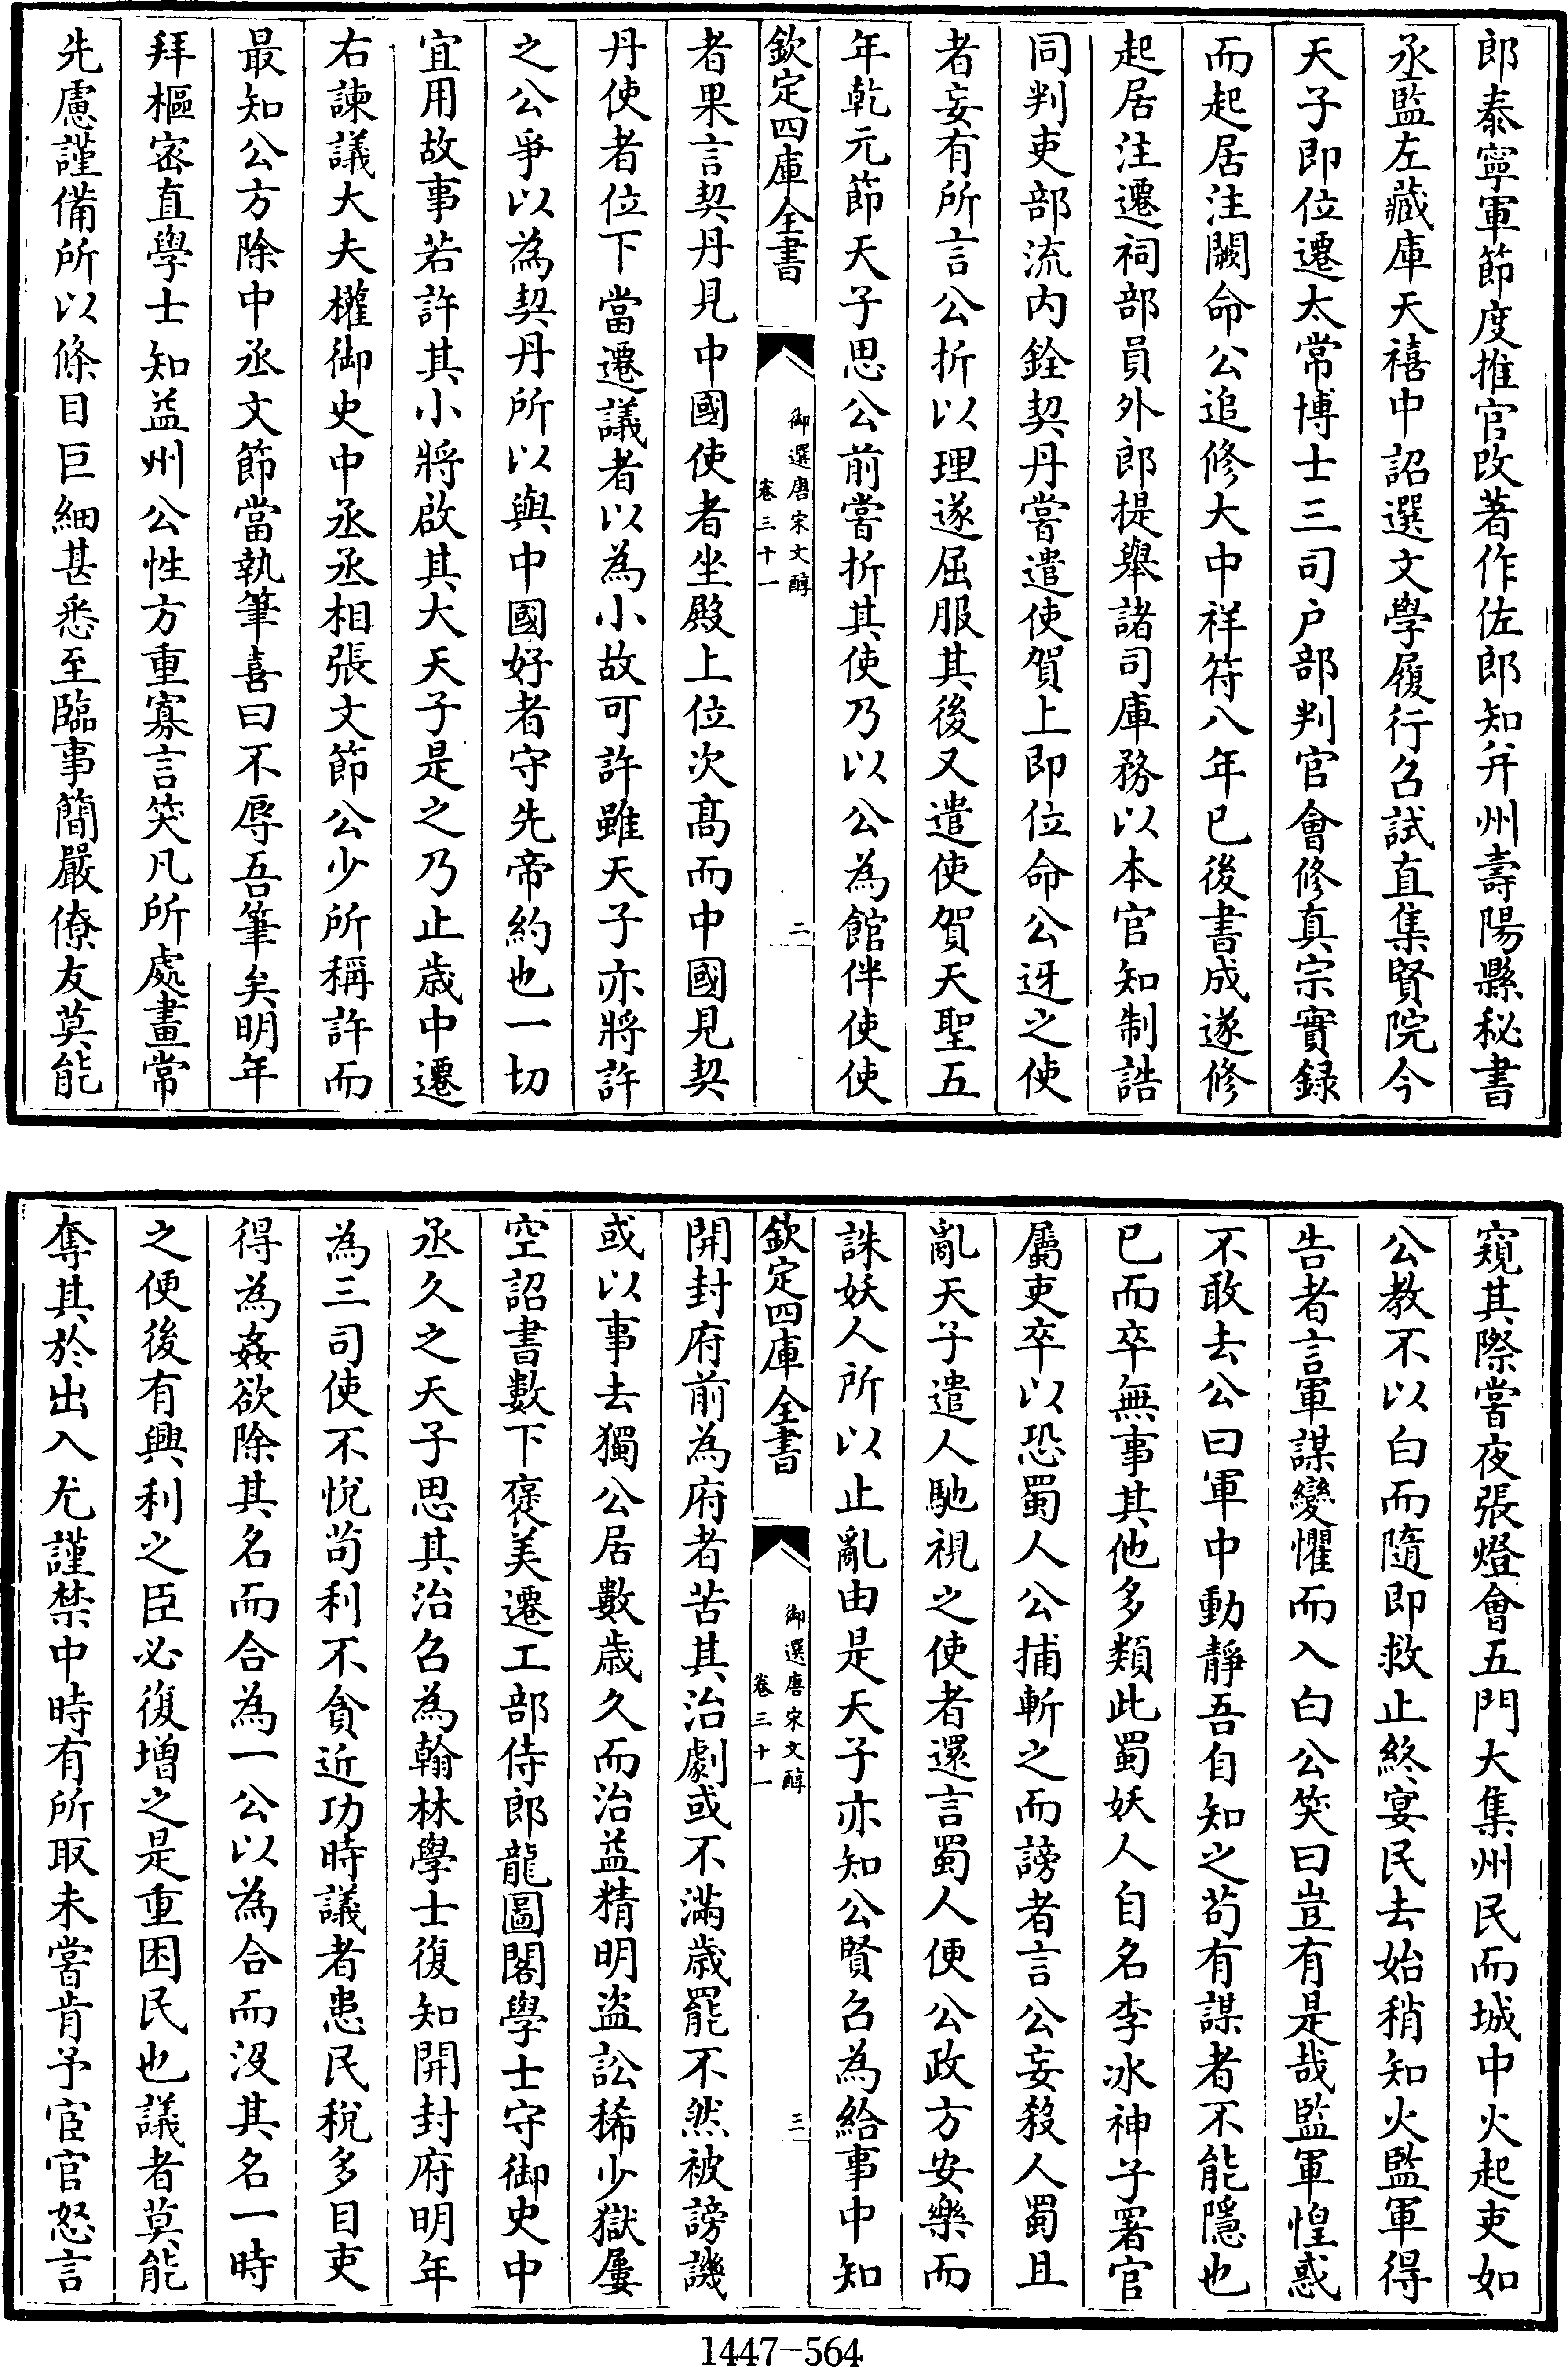 郎泰寧軍節度推官改著作佐郎知并州壽陽縣秘書
丞監左藏庫天禧中詔選文學履行召試直集賢院今
天子即位遷太常博士三司户部判官會修真宗實録
而起居注闕命公追修大中祥符八年已後書成遂修
起居注遷祠部員外郎提舉諸司庫務以本官知制誥
同判吏部流内銓契丹嘗遣使賀上即位命公迓之使
者妄有所言公折以理遂屈服其後又遣使賀天聖五
年乾元節天子思公前嘗折其使乃以公為館伴使使
欽定四庫全書
御選唐宋文醇
卷三十一
二
者果言契丹見中國使者坐殿上位次髙而中國見契
丹使者位下當遷議者以為小故可許雖天子亦將許
之公爭以為契丹所以與中國好者守先帝約也一切
宜用故事若許其小將啟其大天子是之乃止歳中遷
右諫議大夫權御史中丞丞相張文節公少所稱許而
最知公方除中丞文節當執筆喜曰不辱吾筆矣明年
拜樞密直學士知益州公性方重寡言笑凡所處畫常
先慮謹備所以條目巨細甚悉至臨事簡嚴僚友莫能
窺其際嘗夜張燈會五門大集州民而城中火起吏如
公教不以白而隨即救止終宴民去始稍知火監軍得
告者言軍謀變懼而入白公笑曰豈有是哉監軍惶惑
不敢去公曰軍中動靜吾自知之苟有謀者不能隱也
已而卒無事其他多類此蜀妖人自名李冰神子署官
屬吏卒以恐蜀人公捕斬之而謗者言公妄殺人蜀且
亂天子遣人馳視之使者還言蜀人便公政方安樂而
誅妖人所以止亂由是天子亦知公賢召為給事中知
欽定四庫全書
御選唐宋文醇
卷三十一
三
開封府前為府者苦其治劇或不滿歳罷不然被謗譏
或以事去獨公居數歳久而治益精明盜訟稀少獄屢
空詔書數下褒美遷工部侍郎龍圖閣學士守御史中
丞久之天子思其治召為翰林學士復知開封府明年
為三司使不悅苟利不貪近功時議者患民稅多目吏
得為姦欲除其名而合為一公以為合而沒其名一時
之便後有興利之臣必復增之是重困民也議者莫能
奪其於出入尤謹禁中時有所取未嘗肯予宦官怒言
1447-564